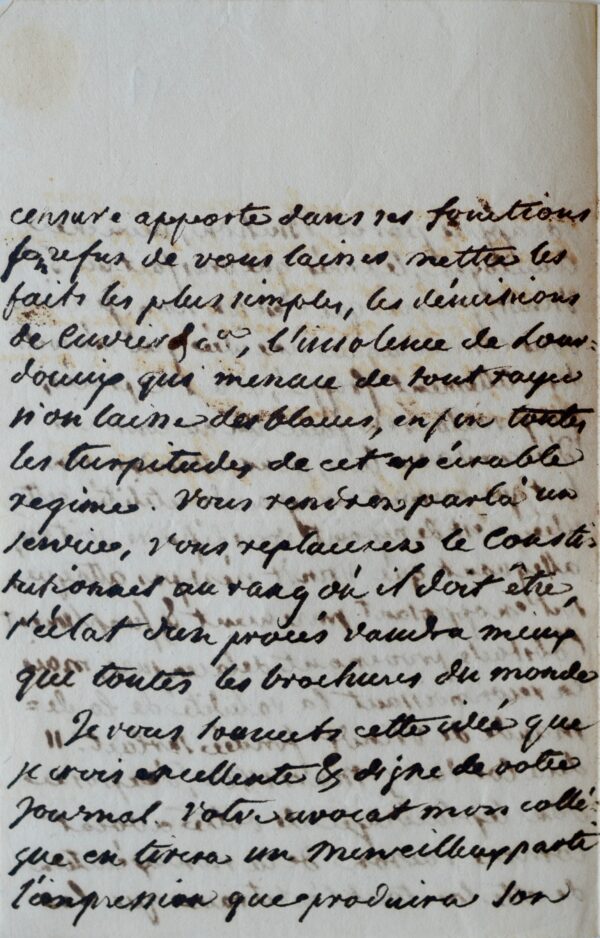 censure apporte dans ses fonctions
refus de vous laisser mettre les
faits les plus simples, les démissions
de Cuvier & Cie, l'insolence de Lour-
doueix qui menace de tout rayer
si on laisse des blancs, enfin toutes
les turpitudes de cet exécrable
regime. Vous rendrez par la un
service, vous replacerez le Consti-
tutionnel au rang où il doit être,
l'éclat d'un procès vaudra mieux
que toutes les brochures du monde
Je vous soumets cette idée que
je crois excellente & digne de votre
Journal. Votre avocat mon collè-
gue en tirera un merveilleux parti
l'impression que produira son